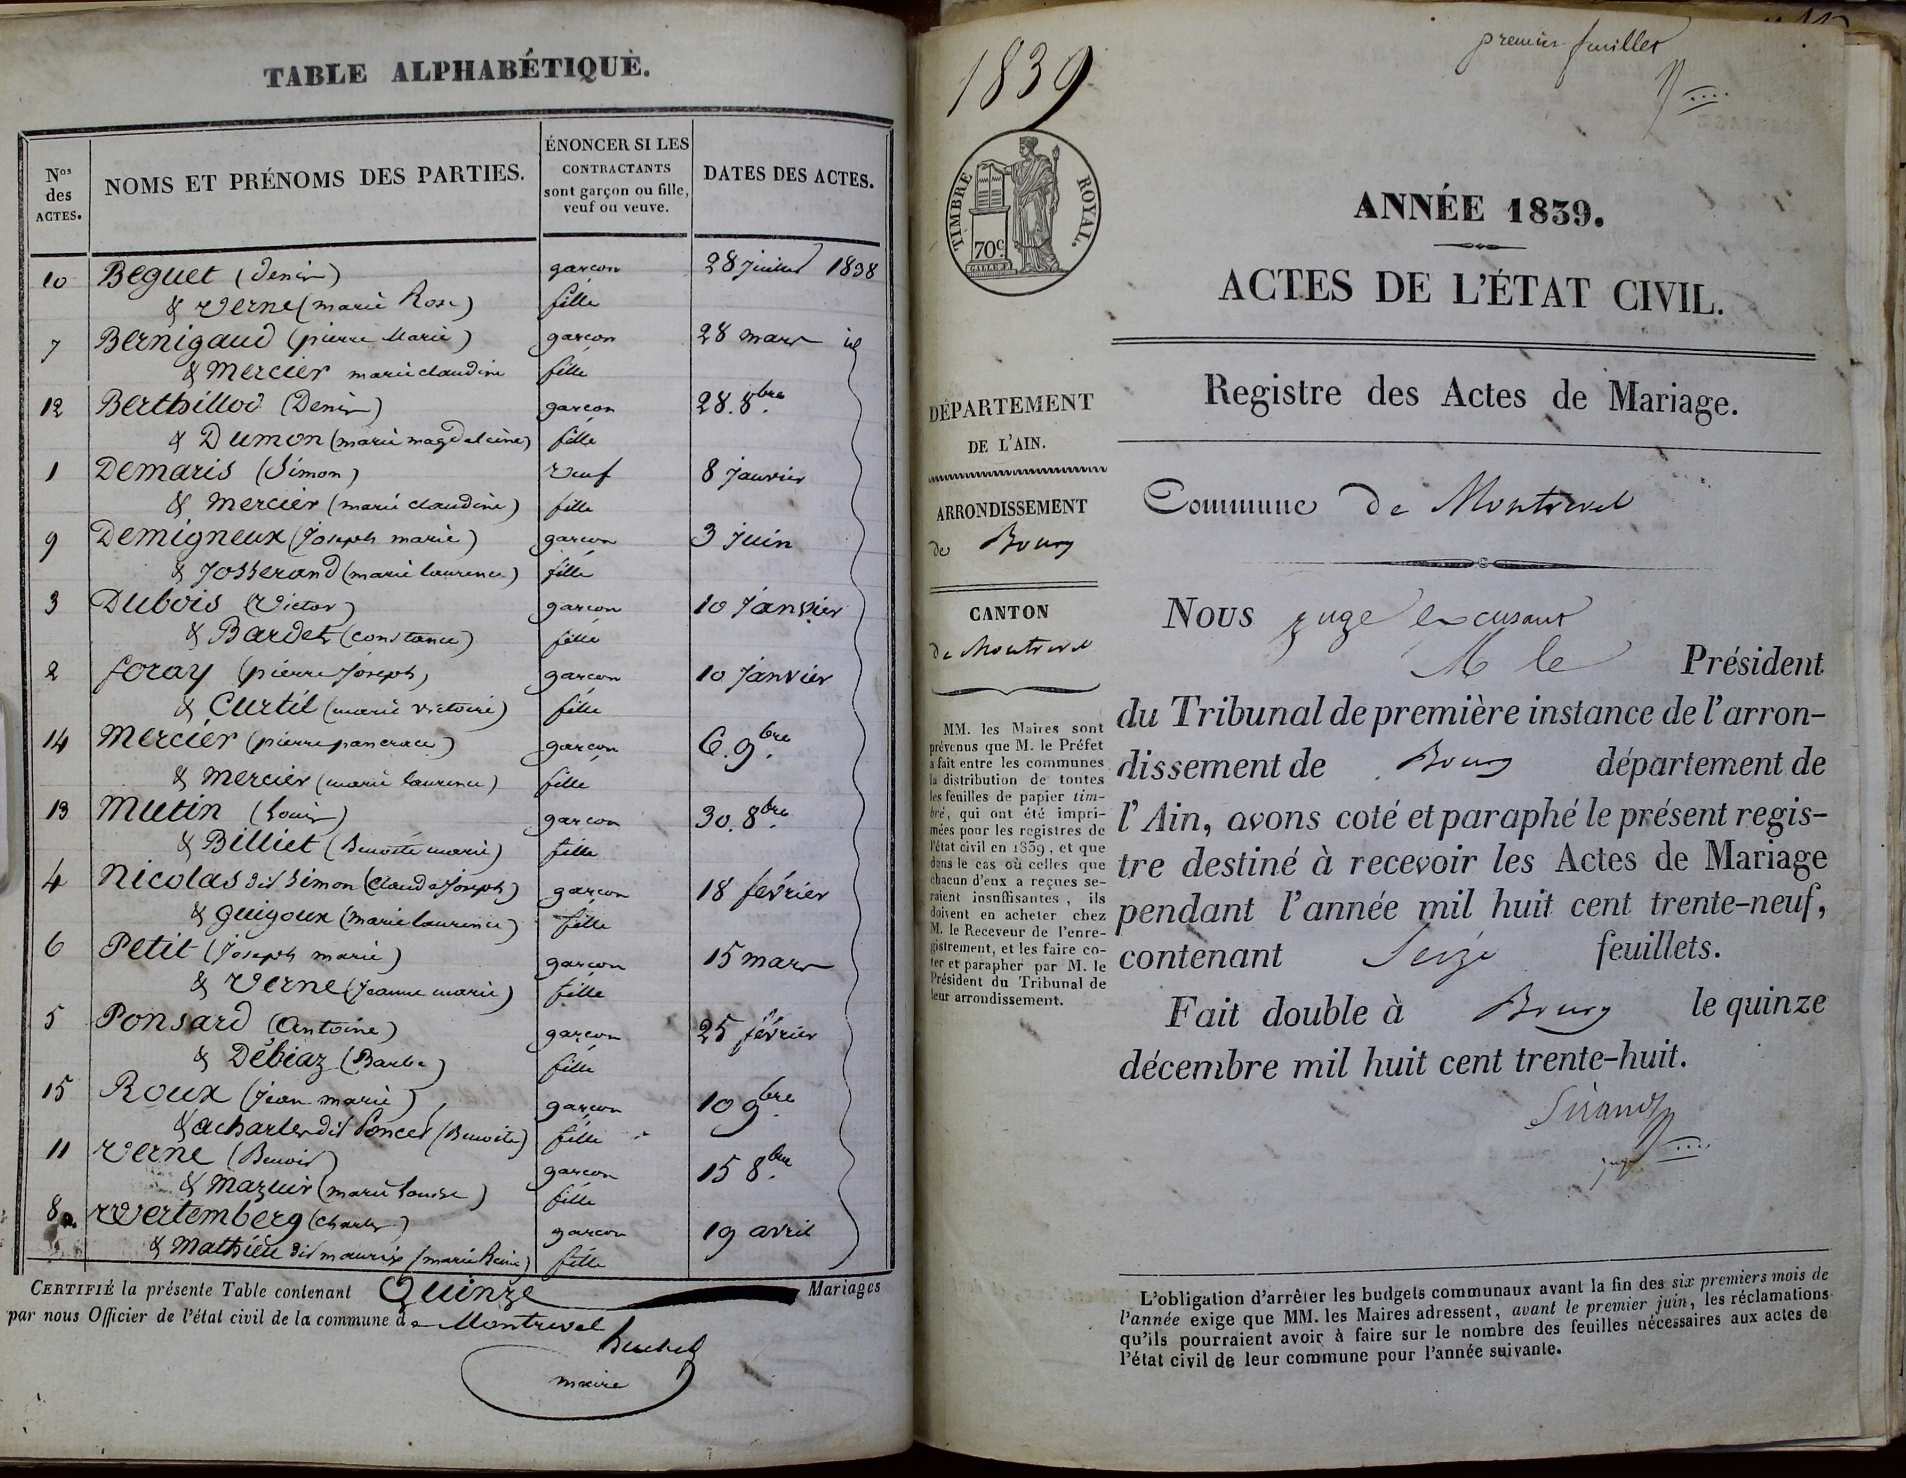 TABLE ALPHABÉTIQUE.
Nos des ACTES.
NOMS ET PRÉNOMS DES PARTIES.
ÉNONCER SI LES
CONTRACTANTS
sont garçon ou fille,
veuf ou veuve.
DATES DES ACTES.
10 Beguet (Denis) garçon 28 juillet 1838
& Verne (marie Rose) fille
7 Bernigaud (pierre Marie) garçon 28 mars id
& Mercier marie claudine fille
12 Berthillod (Denis) garçon 28. 8bre
& Dumon (marie magdeleine) fille
1 Demaris (Simon) veuf 8 Janvier
& Mercier (marie claudine) fille
9 Demigneux (Joseph marie) garçon 3 Juin
& Josserand (marie laurence) fille
3 Dubois (Victor) garçon 10 Janvier
& Bardet (constance) fille
2 foray (pierre Joseph) garçon 10 Janvier
& Curtil (marie victoire) fille
14 Mercier (pierre pancrace) garçon 6. 9bre
& Mercier (marie laurence) fille
13 Mutin (Louis) garçon 30. 8bre
& Billiet (Benoite marie) fille
4 Nicolas dit Simon (Claude Joseph) garçon 18 février
& Guigoux (marie laurence) fille
6 Petit (Joseph marie) garçon 15 mars
& Verne (Jeanne marie) fille
5 Ponsard (Antoine) garçon 25 février
& Débiaz (Barbe) fille
15 Roux (Jean marie) garçon 10 9bre
& acharles dit Poncet (Benoite) fille
11 Verne (Benoit) garçon 15 8bre
& Mazuir (marie louise) fille
8 Wertemberg (Charles) garçon 19 avril
& Mathieu dit mauris (marie Reine) fille
CERTIFIÉ la présente Table contenant Quinze Mariages
par nous Officier de l'état civil de la commune de Montrevel
maire
premier feuillet
1839
TIMBRE ROYAL.
70c.
ANNÉE 1839.
ACTES DE L'ÉTAT CIVIL.
Registre des Actes de Mariage.
DÉPARTEMENT
DE L'AIN.
ARRONDISSEMENT
de Bourg
CANTON
de Montrevel
MM. les Maires sont
prévenus que M. le Préfet
a fait entre les communes
la distribution de toutes
les feuilles de papier tim-
bré, qui ont été impri-
mées pour les registres de
l'état civil en 1839, et que
dans le cas où celles que
chacun d'eux a reçues se-
raient insuffisantes, ils
doivent en acheter chez
M. le Receveur de l'enre-
gistrement, et les faire co-
ter et parapher par M. le
Président du Tribunal de
leur arrondissement.
Commune de Montrevel
Nous juge excusant
M le Président
du Tribunal de première instance de l'arron-
dissement de Bourg département de
l'Ain, avons coté et paraphé le présent regis-
tre destiné à recevoir les Actes de Mariage
pendant l'année mil huit cent trente-neuf,
contenant Seize feuillets.
Fait double à Bourg le quinze
décembre mil huit cent trente-huit.
Sirand
juge
L'obligation d'arrêter les budgets communaux avant la fin des six premiers mois de
l'année exige que MM. les Maires adressent, avant le premier juin, les réclamations
qu'ils pourraient avoir à faire sur le nombre des feuilles nécessaires aux actes de
l'état civil de leur commune pour l'année suivante.